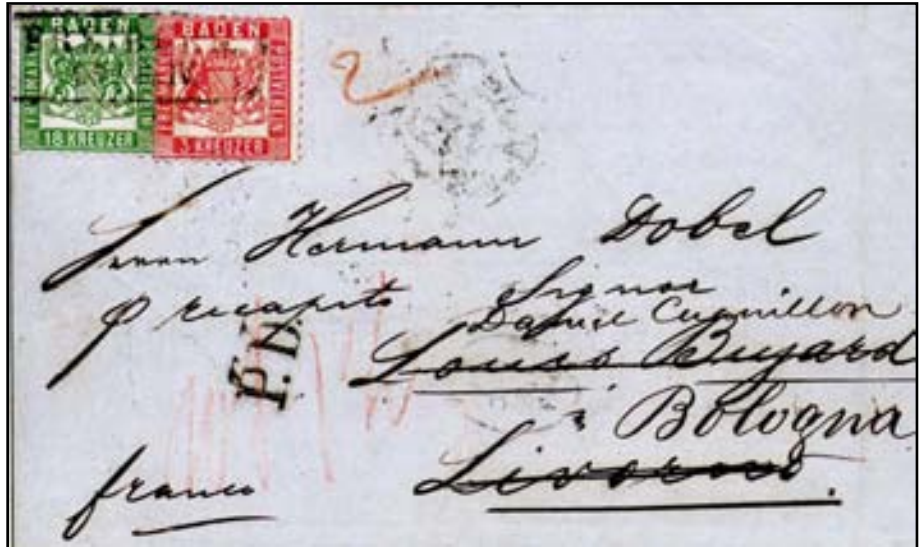 BADEN
FREIMARKE
18 KREUZER
BADEN
POSTVEREIN
3 KREUZER
2
Herrn Hermann Dobel
p recapito Signor
Daniel Cuquillon
Louis Buyard
P.D.
Bologna
franco Livorno.